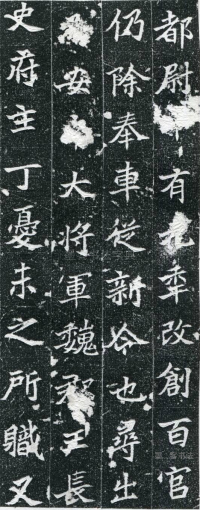 都尉有年改創百官
仍除奉車從新令也尋出
安大將軍魏郡王長
史府主丁憂未之所職又